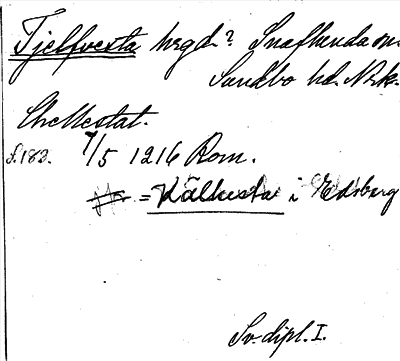 Tjelfvesta hrgd? Snaflunda sn.
Sundbo hd. Nrk.
Chellestat.
S. 183. 7/5 1216 Rom.
= Källesta i Edsberg
Sv. dipl. I.